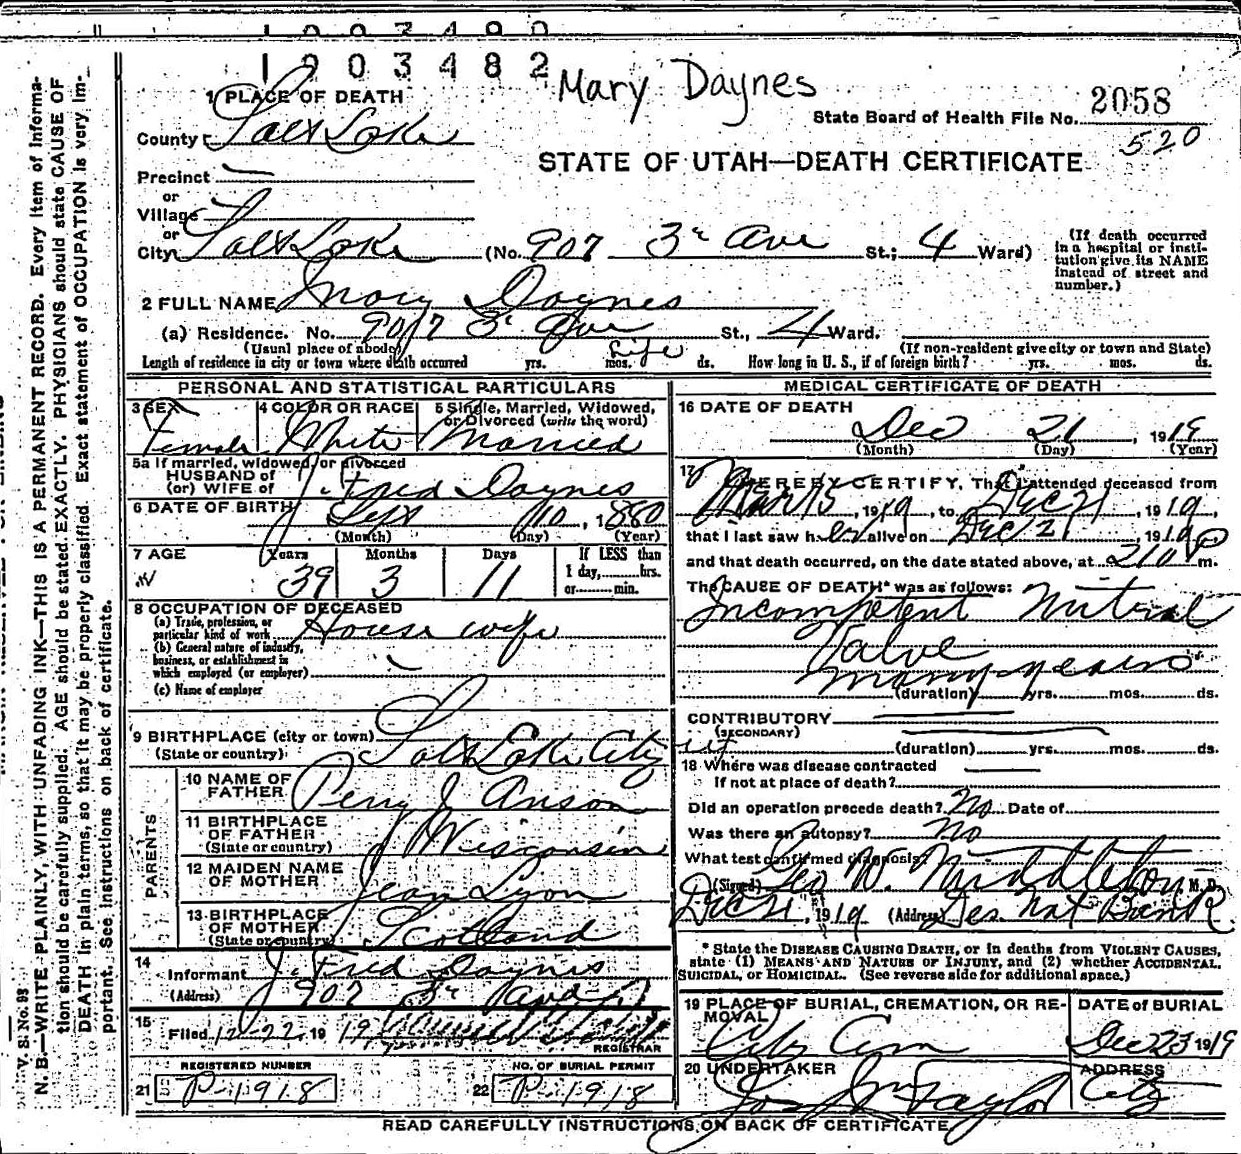 1903482
1903482
Mary Daynes
State Board of Health File No. 2058
520
STATE OF UTAH—DEATH CERTIFICATE
1 PLACE OF DEATH
County Salt Lake
Precinct —
or
Village
or
City Salt Lake (No. 907 3r Ave St.; 4 Ward)
(If death occurred in a hospital or institution give its NAME instead of street and number.)
2 FULL NAME Mary Daynes
(a) Residence. No. 907 3r Ave St., 4 Ward.
(Usual place of abode) (If non-resident give city or town and State)
Length of residence in city or town where death occurred yrs. mos. ds. Life How long in U. S., if of foreign birth? yrs. mos. ds.
PERSONAL AND STATISTICAL PARTICULARS
3 SEX Female
4 COLOR OR RACE White
5 Single, Married, Widowed, or Divorced (write the word) Married
5a If married, widowed, or divorced
HUSBAND of
(or) WIFE of J. Fred Daynes
6 DATE OF BIRTH Sept 10, 1880
(Month) (Day) (Year)
7 AGE Years Months Days If LESS than
39 3 11 1 day,........hrs.
or.........min.
8 OCCUPATION OF DECEASED
(a) Trade, profession, or particular kind of work House wife
(b) General nature of industry, business, or establishment in which employed (or employer)
(c) Name of employer
9 BIRTHPLACE (city or town) Salt Lake City
(State or country)
PARENTS
10 NAME OF FATHER Perry J Anson
11 BIRTHPLACE OF FATHER (State or country) Wisconsin
12 MAIDEN NAME OF MOTHER Jean Lyon
13 BIRTHPLACE OF MOTHER (State or country) Scotland
14
Informant J. Fred Daynes
(Address) 907 3r
15
Filed 12-22, 19 19
REGISTRAR
REGISTERED NUMBER NO. OF BURIAL PERMIT
21 P-1918 22 P-1918
MEDICAL CERTIFICATE OF DEATH
16 DATE OF DEATH
Dec 21, 1919
(Month) (Day) (Year)
17 I HEREBY CERTIFY, That I attended deceased from
Mar 15, 1919, to Dec 21, 1919,
that I last saw her alive on Dec 21, 1919
and that death occurred, on the date stated above, at 210 P m.
The CAUSE OF DEATH* was as follows:
Incompetent Mitral
Valve
many years
(duration) yrs. mos. ds.
CONTRIBUTORY
(SECONDARY)
(duration) yrs. mos. ds.
18 Where was disease contracted
If not at place of death?
Did an operation precede death? No Date of
Was there an autopsy? No
What test confirmed diagnosis?
(Signed) Geo W. Middleton, M. D.
Dec 21, 1919 (Address) Des. Nat Bank
* State the DISEASE CAUSING DEATH, or in deaths from VIOLENT CAUSES, state (1) MEANS AND NATURE OF INJURY, and (2) whether ACCIDENTAL, SUICIDAL, or HOMICIDAL. (See reverse side for additional space.)
19 PLACE OF BURIAL, CREMATION, OR REMOVAL DATE of BURIAL
City Cem Dec 23 1919
20 UNDERTAKER ADDRESS
Jos Wm Taylor City
READ CAREFULLY INSTRUCTIONS ON BACK OF CERTIFICATE
V. S. No. 93
N. B.—WRITE PLAINLY, WITH UNFADING INK—THIS IS A PERMANENT RECORD. Every item of information should be carefully supplied. AGE should be stated EXACTLY. PHYSICIANS should state CAUSE OF DEATH in plain terms, so that it may be properly classified. Exact statement of OCCUPATION is very important. See instructions on back of certificate.